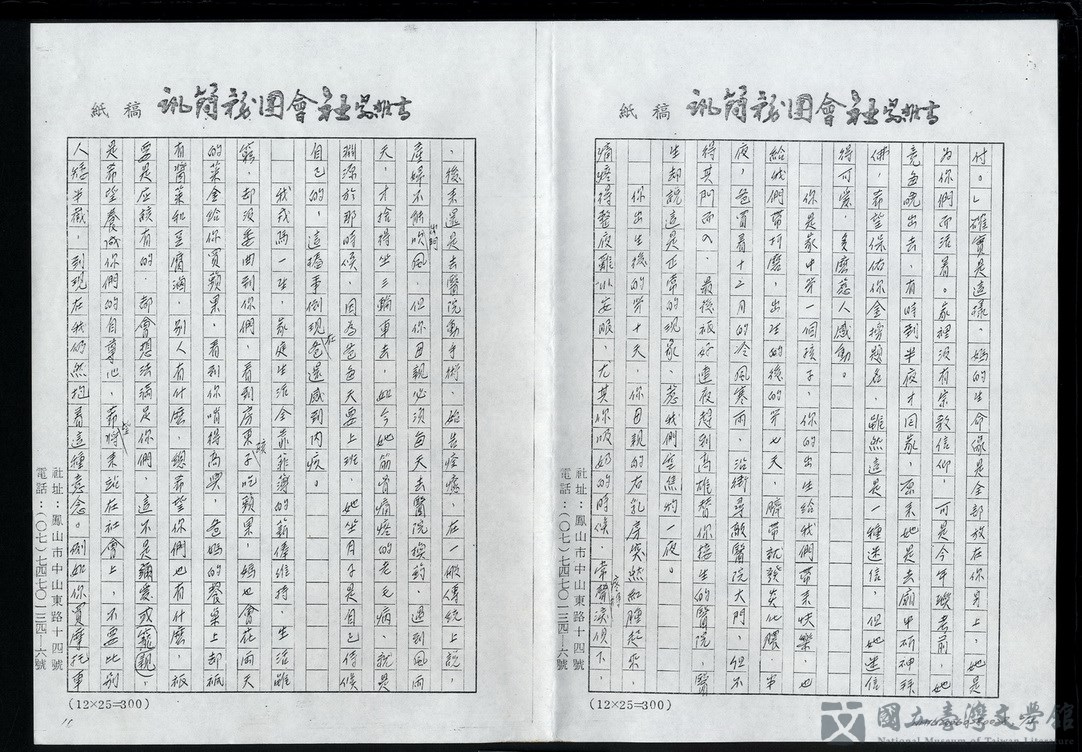 付。」確實是這樣，媽的生命像是全部放在你身上，她是
為你們而活着。家裡沒有宗教信仰，可是今年聯考前，她
竟每晚出去，有時到半夜才回家，原來她是去廟中祈神拜
佛，希望保佑你金榜題名，雖然這是一種迷信，但她迷信
得可愛，多麼慈人感動。
你是家中第一個孩子，你的出生給我們帶來快樂，也
給我們帶折磨，出生的後的第七天，臍帶就發炎化膿，半
夜，爸冒着十二月的冷風寒雨，沿街尋敲醫院大門，但不
得其門而入，最後祇好連夜趕到高雄替你接生的醫院，醫
生却說這是正常的現象，惹我們焦慮的一夜。
你出生後的第十天，你母親的右乳房突然紅腫起來，
痛疼得整夜難以安眠，尤其你吸奶的時候，常聲淚俱下，
，後來還是去醫院動手術，始告痊癒，在一般傳統上說，
產婦不能出門吹風，但你母親必須每天去醫院換藥，遇到風雨
天，才捨得坐三輪車去，如今她筋骨痛疼的老毛病，就是
淵源於那時候，因為爸爸天天要上班，她坐月子是自己侍候
自己的，這樁事倒現在爸還感到內疚。
我戎馬一生，家庭生活全靠菲薄的薪俸維持，生活雖
窮，却沒委曲到你們，看到房東孩子吃蘋果，媽也會在兩天
的菜金給你買蘋果，看到你啃得高興，爸媽的餐桌上却祇
有醬菜和豆腐滷，別人有什麼，總希望你們也有什麼，祇
要是应該有的，都會想法滿足你們，這不是溺愛或寵親，
是希望養成你們的自尊心，希望將來站在社會上，不要比別
人矮半截，到現在我仍然抱着這種意念。例如你買摩托車
稿紙
稿紙
社址：鳳山市中山東路十四號
電話：(〇七)七四七〇一二三四—六號
社址：鳳山市中山東路十四號
電話：(〇七)七四七〇一二三四—六號
(12×25=300)
(12×25=300)
11
國立臺灣文學館
National Museum of Taiwan Literature